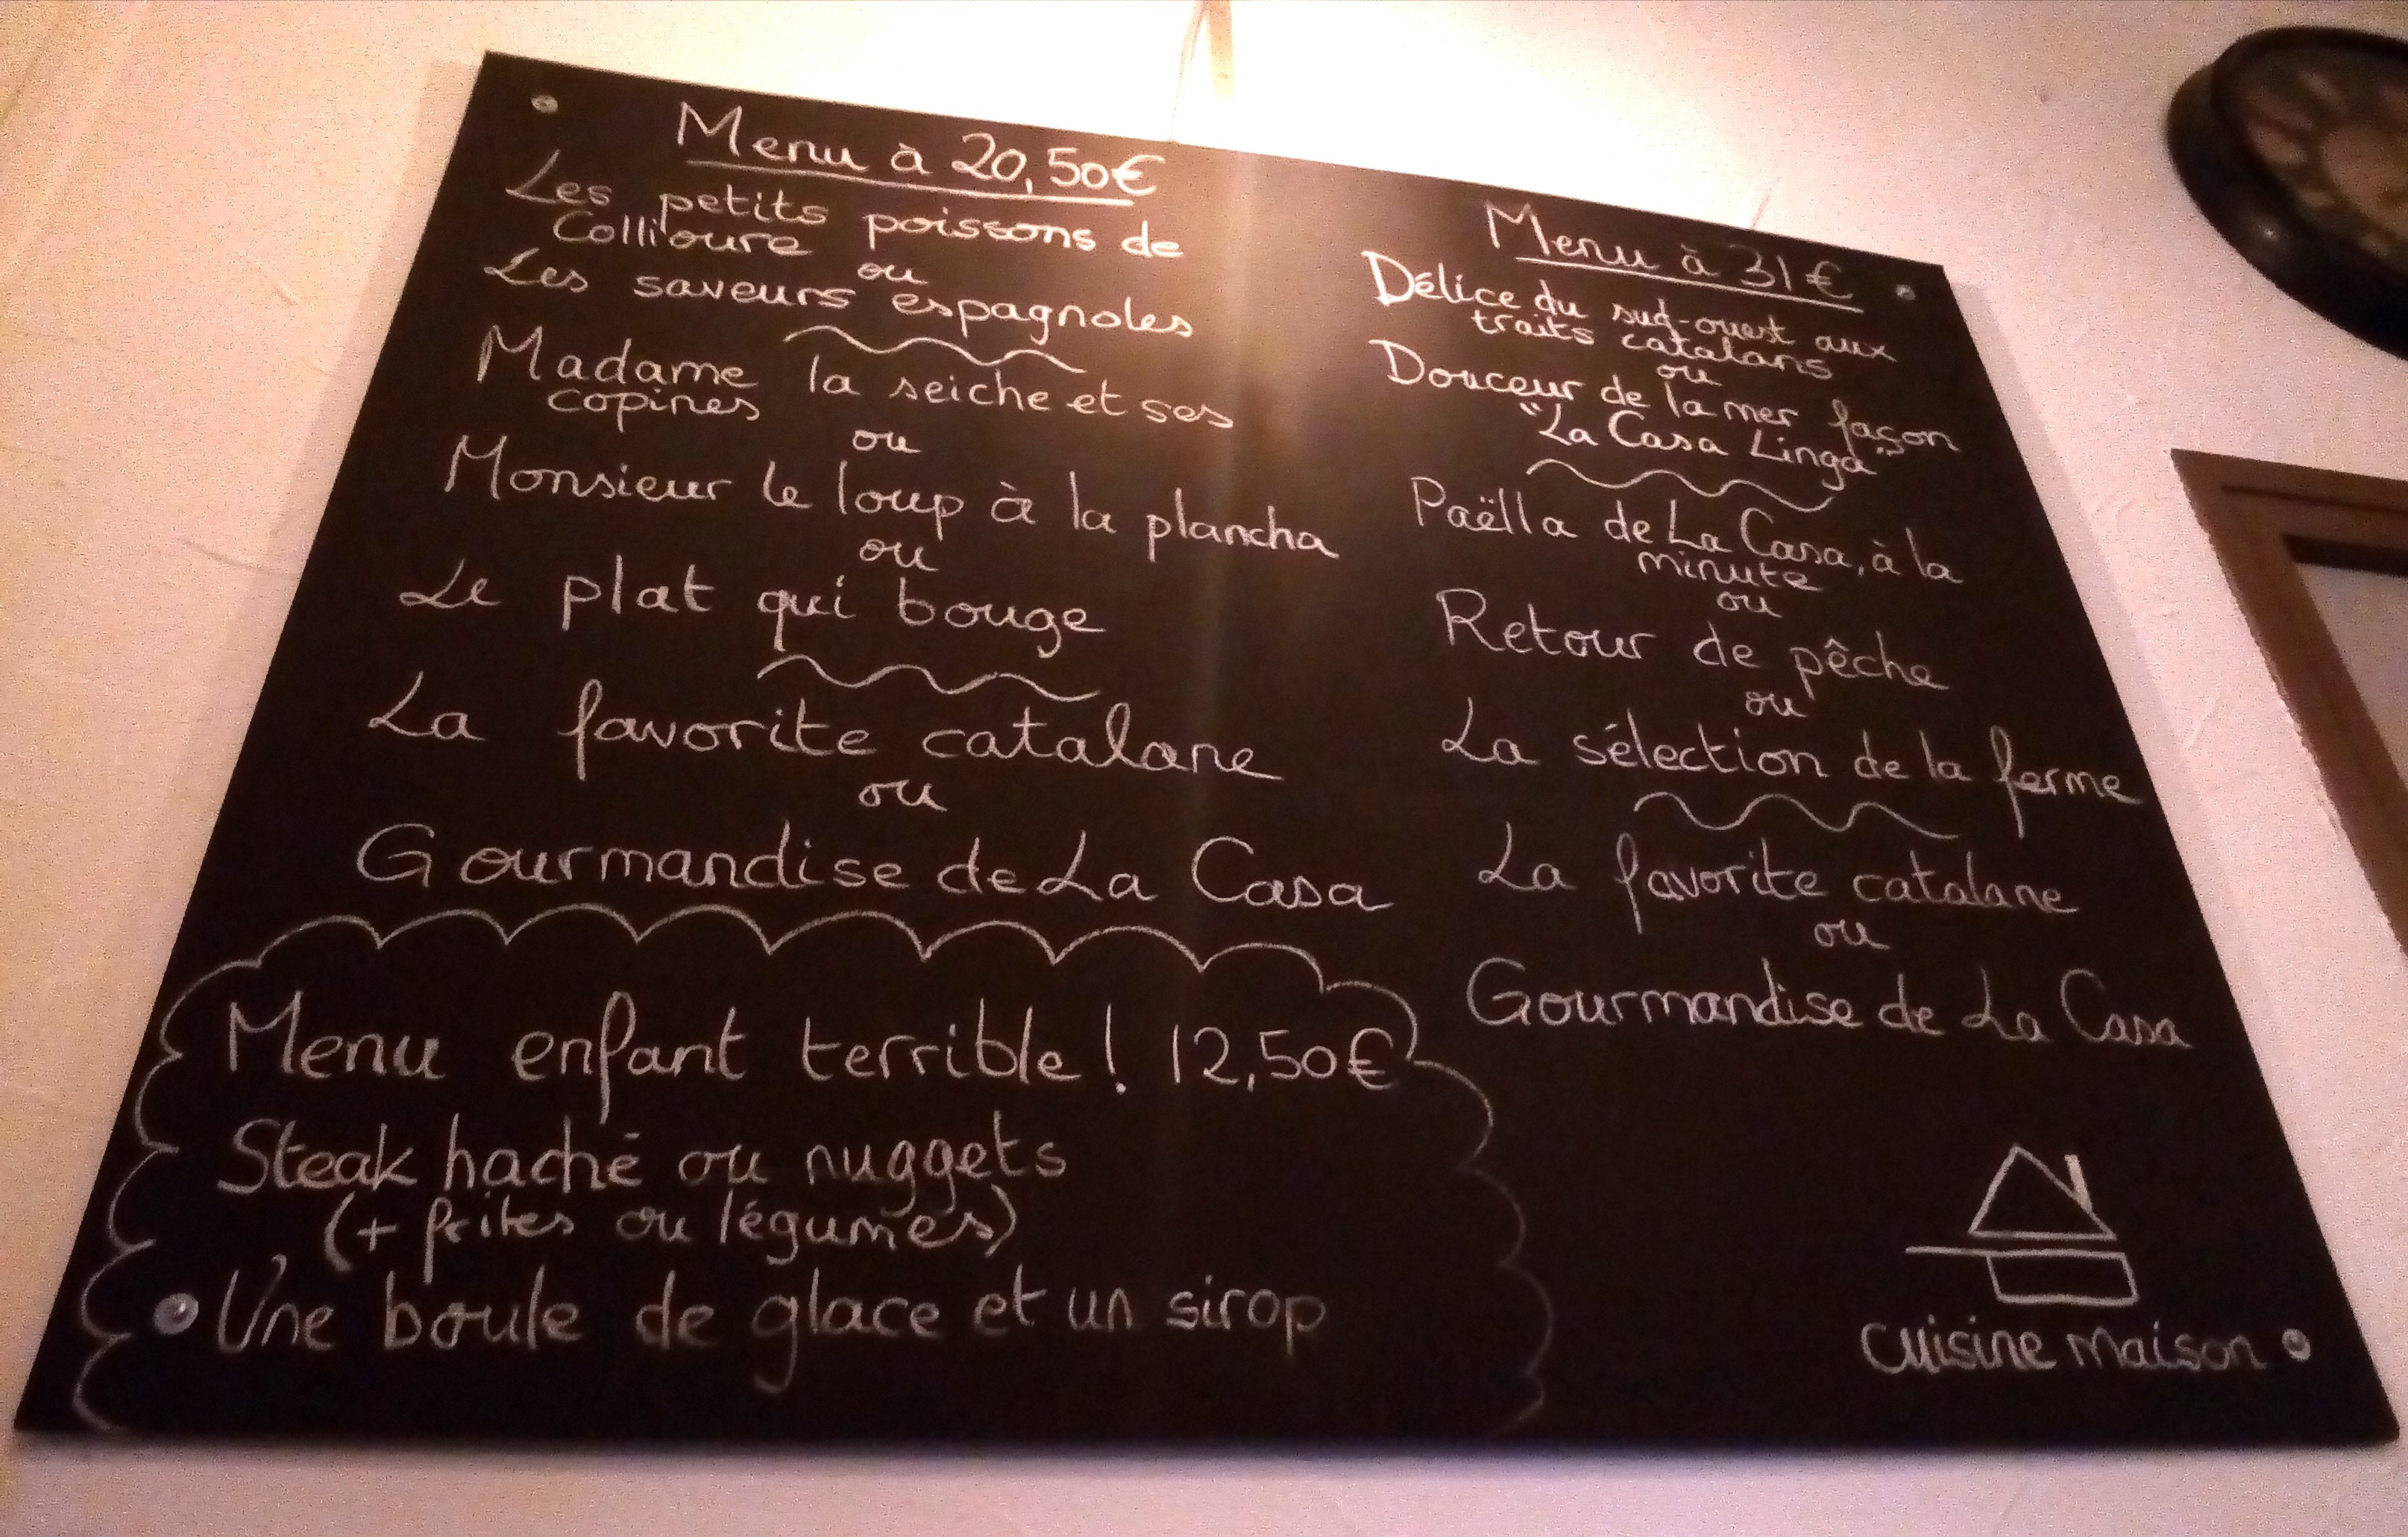 Menu à 20,50€
Les petits poissons de
Collioure
ou
Les saveurs espagnoles
Madame la seiche et ses
copines
ou
Monsieur le loup à la plancha
ou
Le plat qui bouge
La favorite catalane
ou
Gourmandise de La Casa
Menu enfant terrible ! 12,50€
Steak haché ou nuggets
(+ frites ou légumes)
Une boule de glace et un sirop
Menu à 31€
Délice du sud-ouest aux
traits catalans
ou
Douceur de la mer façon
"La Casa Linga"
Paëlla de La Casa, à la
minute
ou
Retour de pêche
ou
La sélection de la ferme
La favorite catalane
ou
Gourmandise de La Casa
Cuisine maison